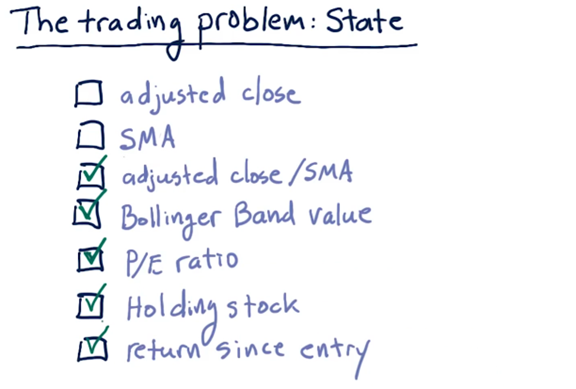 The trading problem: State
adjusted close
SMA
adjusted close/SMA
Bollinger Band value
P/E ratio
Holding stock
return since entry